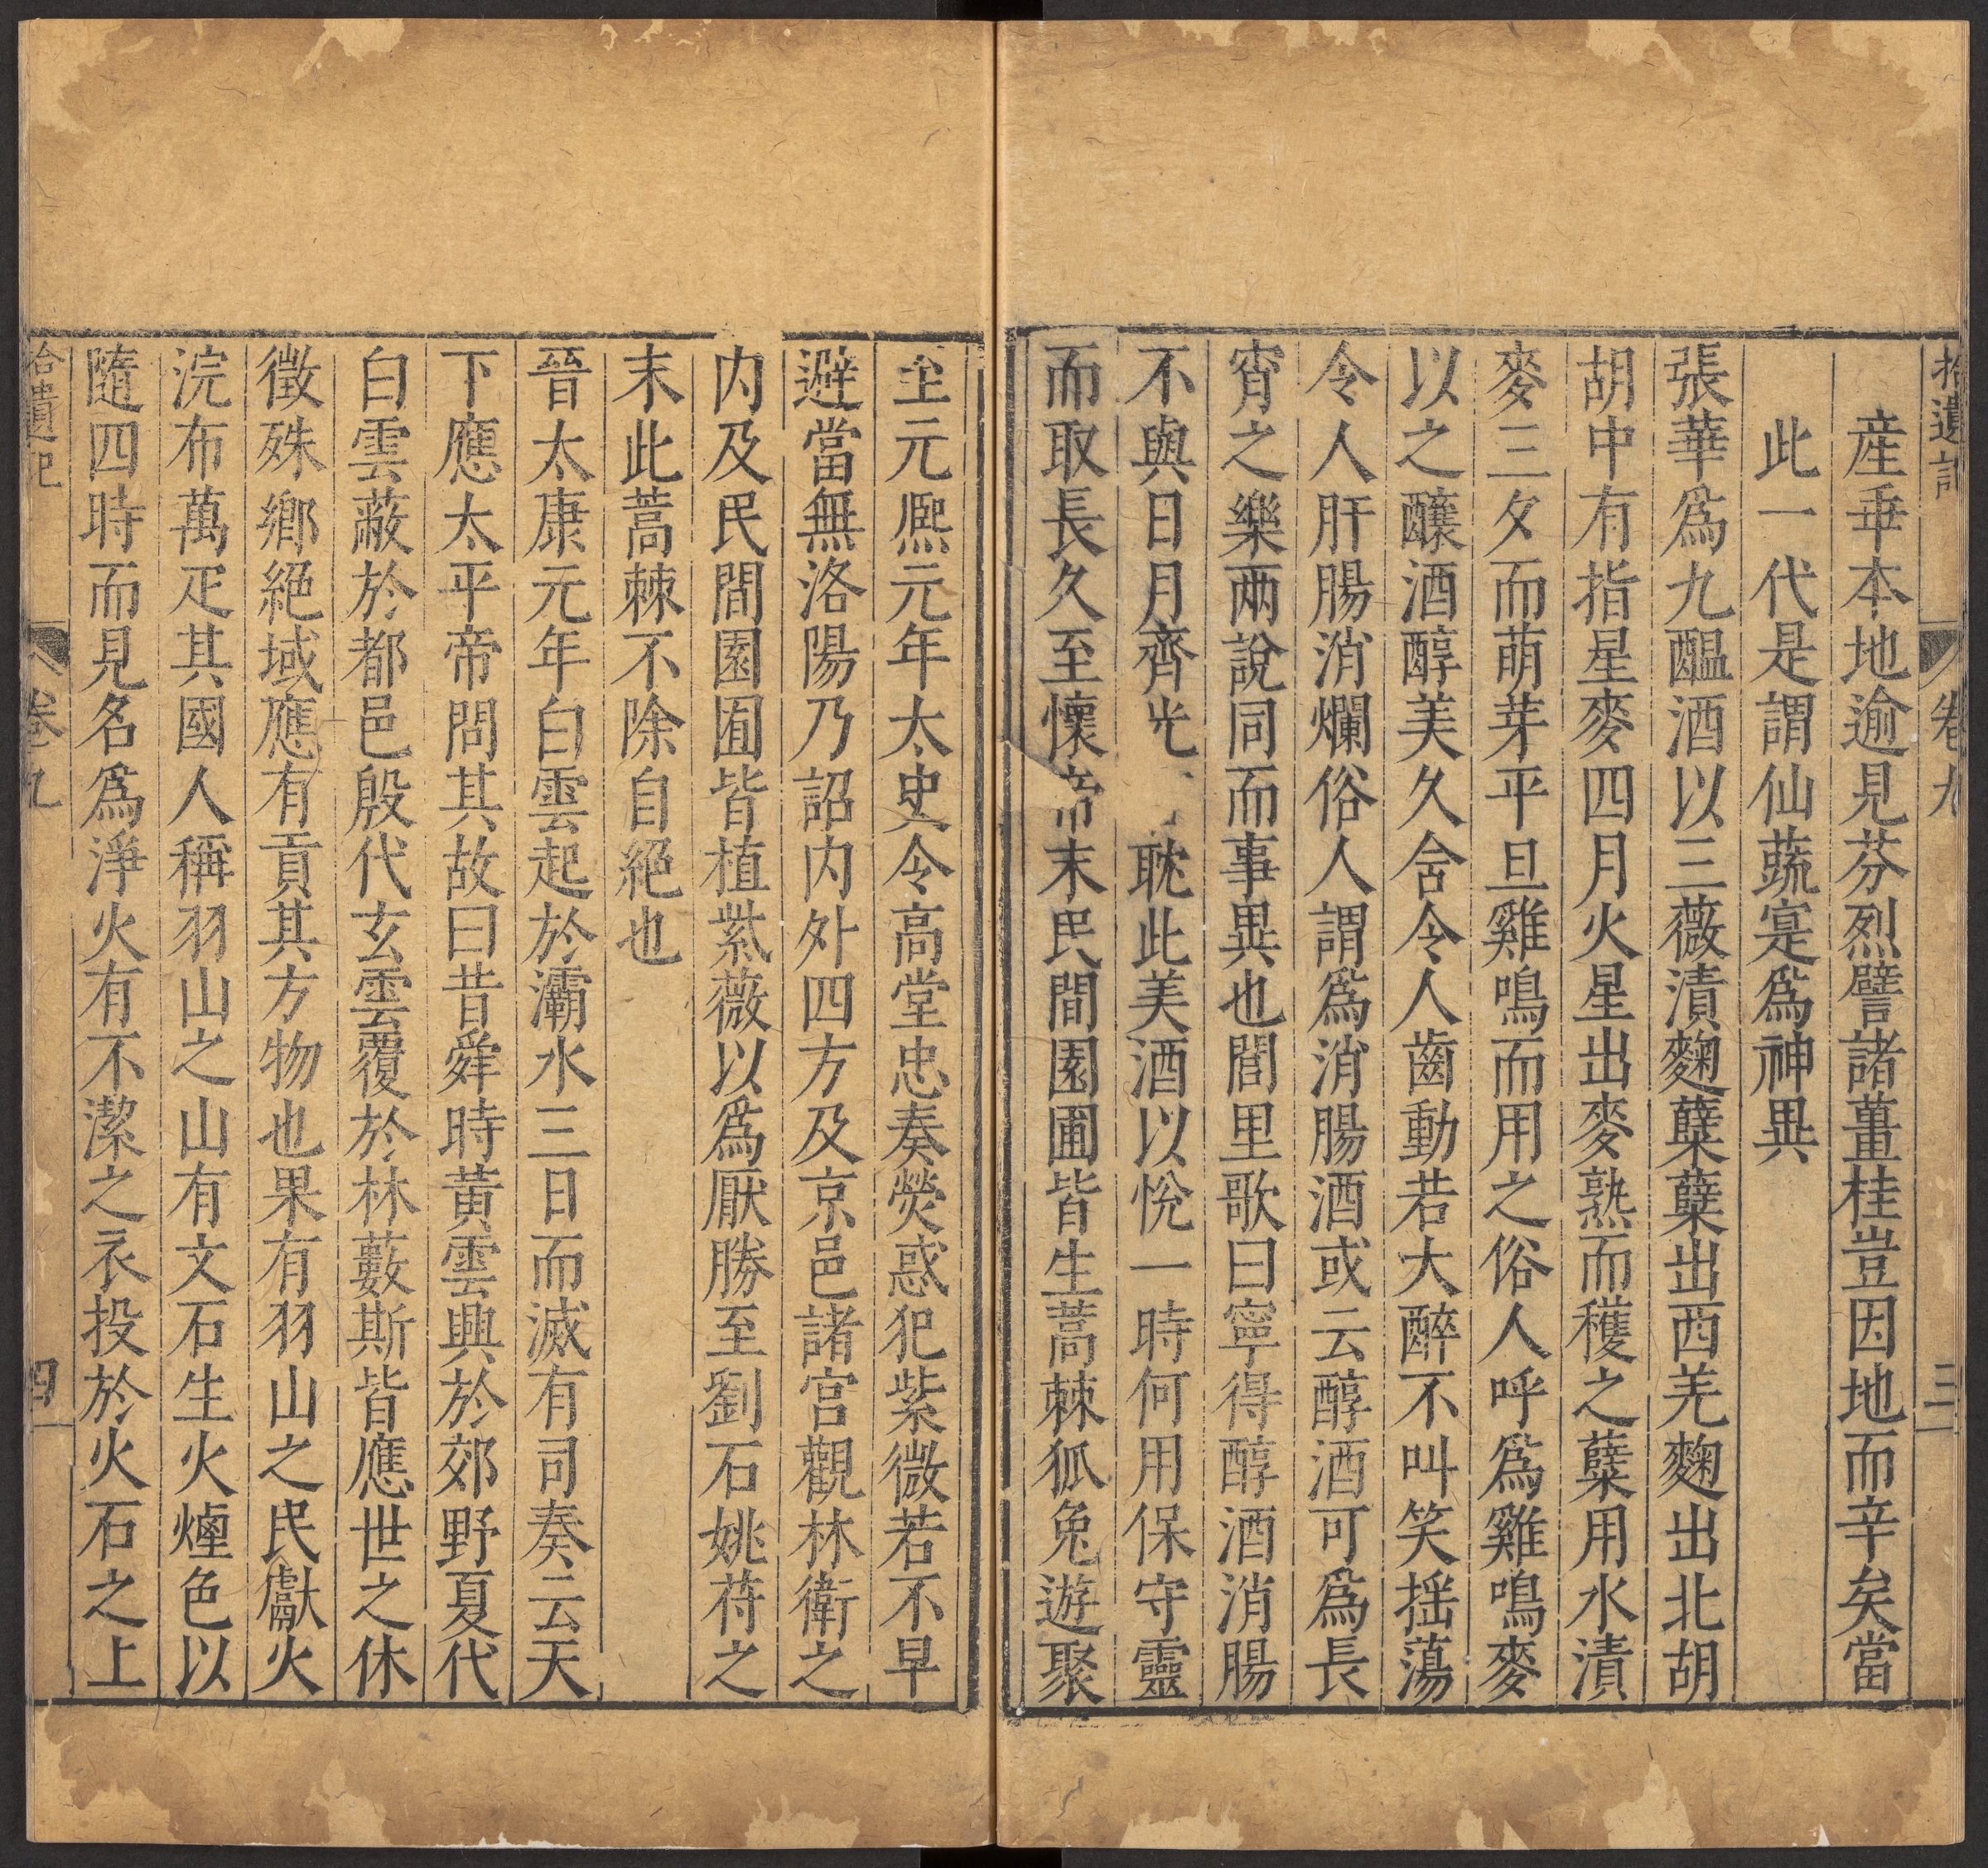 拾遺記 卷九 三
産垂本地逾見芬烈譬諸薑桂豈因地而辛矣當
此一代是謂仙蔬寔爲神異
張華爲九醞酒以三薇漬麴糵糵出西羌麴出北胡
胡中有指星麥四月火星出麥熟而穫之糵用水漬
麥三夕而萌芽平旦雞鳴而用之俗人呼爲雞鳴麥
以之釀酒醇美久含令人齒動若大醉不叫笑揺蕩
令人肝腸消爛俗人謂爲消腸酒或云醇酒可爲長
宵之樂兩說同而事異也閭里歌曰寧得醇酒消腸
不與日月齊光 耽此美酒以悅一時何用保守靈
而取長久至懷帝末民間園圃皆生蒿棘狐兔遊聚
至元熈元年太史令高堂忠奏熒惑犯紫微若不早
避當無洛陽乃詔内外四方及京邑諸宫觀林衛之
内及民間園囿皆植紫薇以爲厭勝至劉石姚苻之
末此蒿棘不除自絕也
晉太康元年白雲起於灞水三日而滅有司奏云天
下應太平帝問其故曰昔舜時黃雲興於郊野夏代
白雲蔽於都邑殷代玄雲覆於林藪斯皆應世之休
徵殊鄉絕域應有貢其方物也果有羽山之民獻火
浣布萬疋其國人稱羽山之山有文石生火煙色以
隨四時而見名爲淨火有不潔之衣投於火石之上
拾遺記 卷九 四